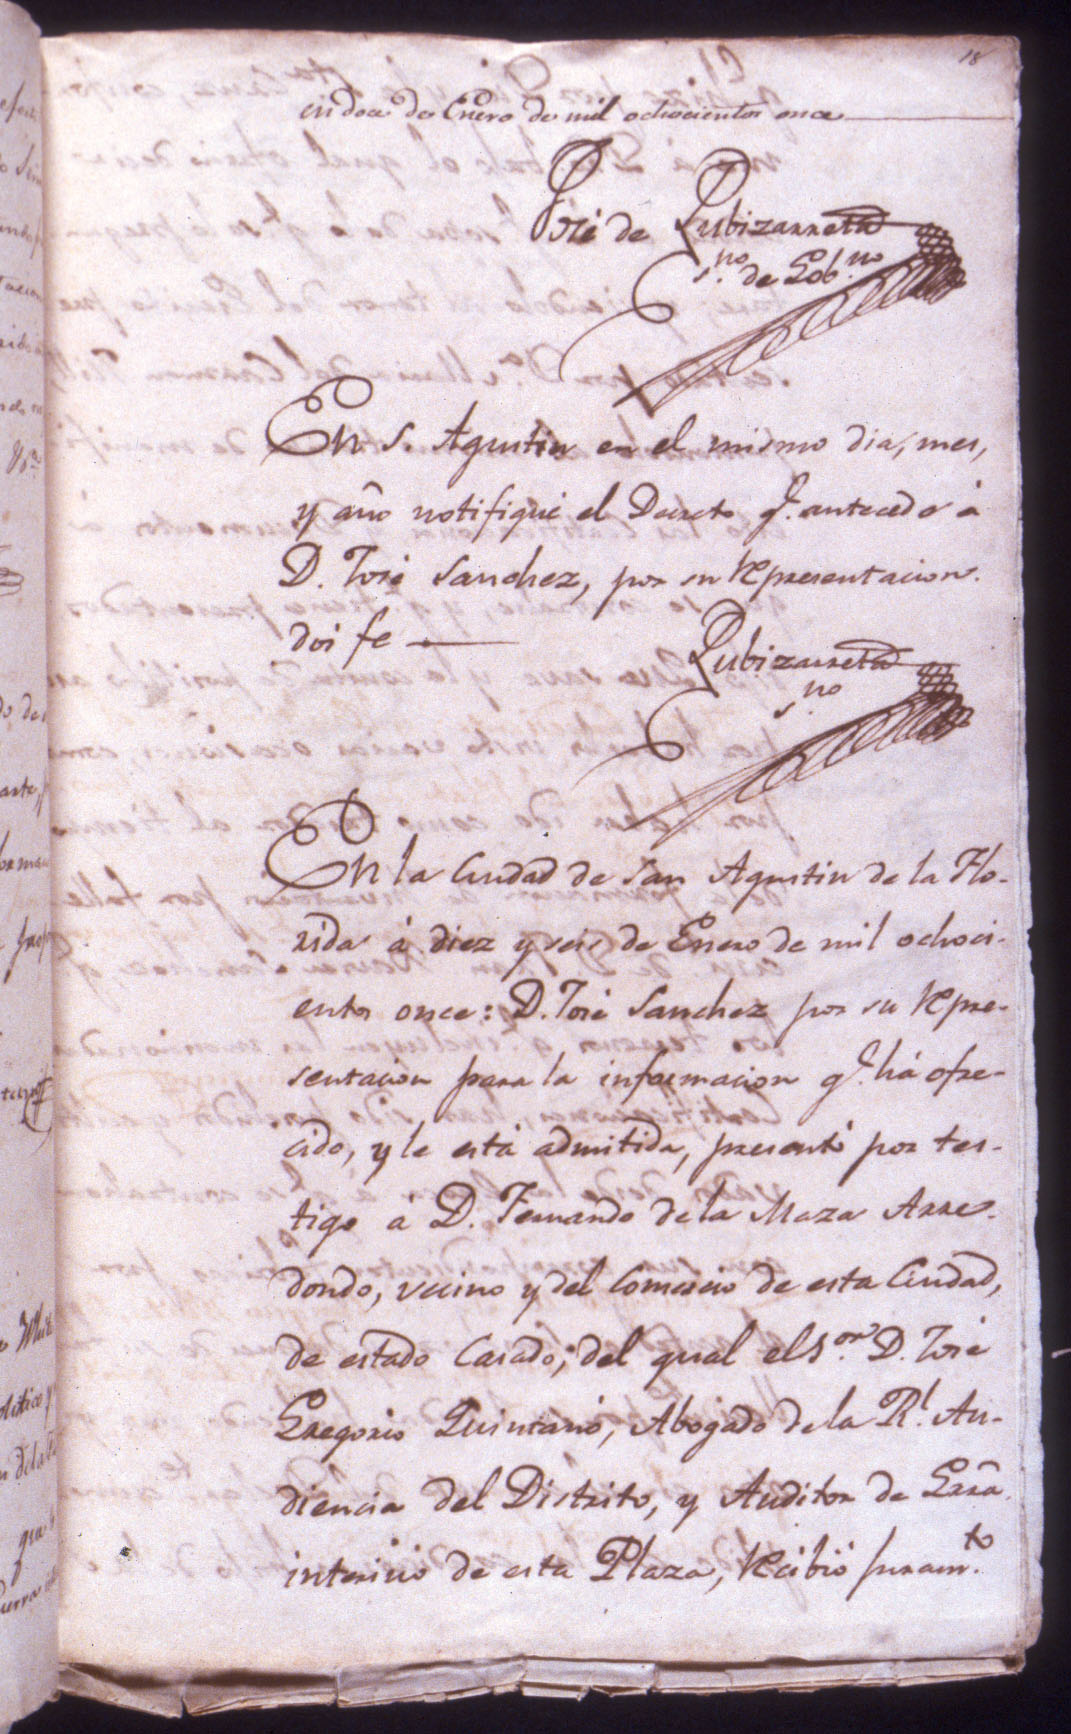 18
en doce de Enero de mil ochocientos once
José de Zubizarreta
s.no de Gob.no
En S. Agustin en el mismo dia, mes,
y año notifiqué el Decreto q.e antecede á
D. José Sanchez, por su representacion.
doi fe
Zubizarreta
s.no
En la Ciudad de San Agustin de la Flo-
rida á diez y seis de Enero de mil ochoci-
entos once: D. José Sanchez por su repre-
sentacion para la informacion q.e há ofre-
cido, y le está admitida, presentó por tes-
tigo á D. Fernando de la Maza Arre-
dondo, vecino y del Comercio de esta Ciudad,
de estado Casado; del qual el S.or D. José
Gregorio Quintano, Abogado de la R.l Au-
diencia del Distrito, y Auditor de Grrã
interino de esta Plaza, recibió juram.to